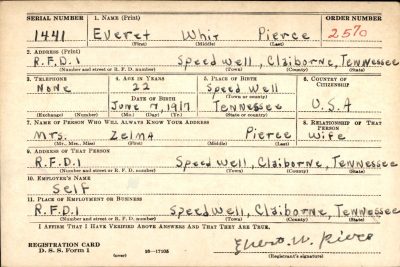 SERIAL NUMBER 1. NAME (Print) ORDER NUMBER
1441 Everet Whit Pierce 2570
(First) (Middle) (Last)
2. ADDRESS (Print)
R.F.D.1 Speedwell, Claiborne, Tennessee
(Number and street or R. F. D. number) (Town) (County) (State)
3. TELEPHONE 4. AGE IN YEARS 5. PLACE OF BIRTH 6. COUNTRY OF CITIZENSHIP
None 22 Speedwell
DATE OF BIRTH (Town or county)
June 7, 1917 Tennessee U.S.A
(Exchange) (Number) (Mo.) (Day) (Yr.) (State or country)
7. NAME OF PERSON WHO WILL ALWAYS KNOW YOUR ADDRESS 8. RELATIONSHIP OF THAT PERSON
Mrs. Zelma Pierce Wife
(Mr., Mrs., Miss) (First) (Middle) (Last)
9. ADDRESS OF THAT PERSON
R.F.D.1 Speedwell, Claiborne, Tennessee
(Number and street or R. F. D. number) (Town) (County) (State)
10. EMPLOYER'S NAME
Self
11. PLACE OF EMPLOYMENT OR BUSINESS
R.F.D.1 Speedwell, Claiborne, Tennessee
(Number and street or R. F. D. number) (Town) (County) (State)
I AFFIRM THAT I HAVE VERIFIED ABOVE ANSWERS AND THAT THEY ARE TRUE.
Everet W. Pierce
REGISTRATION CARD
D. S. S. Form 1 (over) 16—17105 (Registrant's signature)